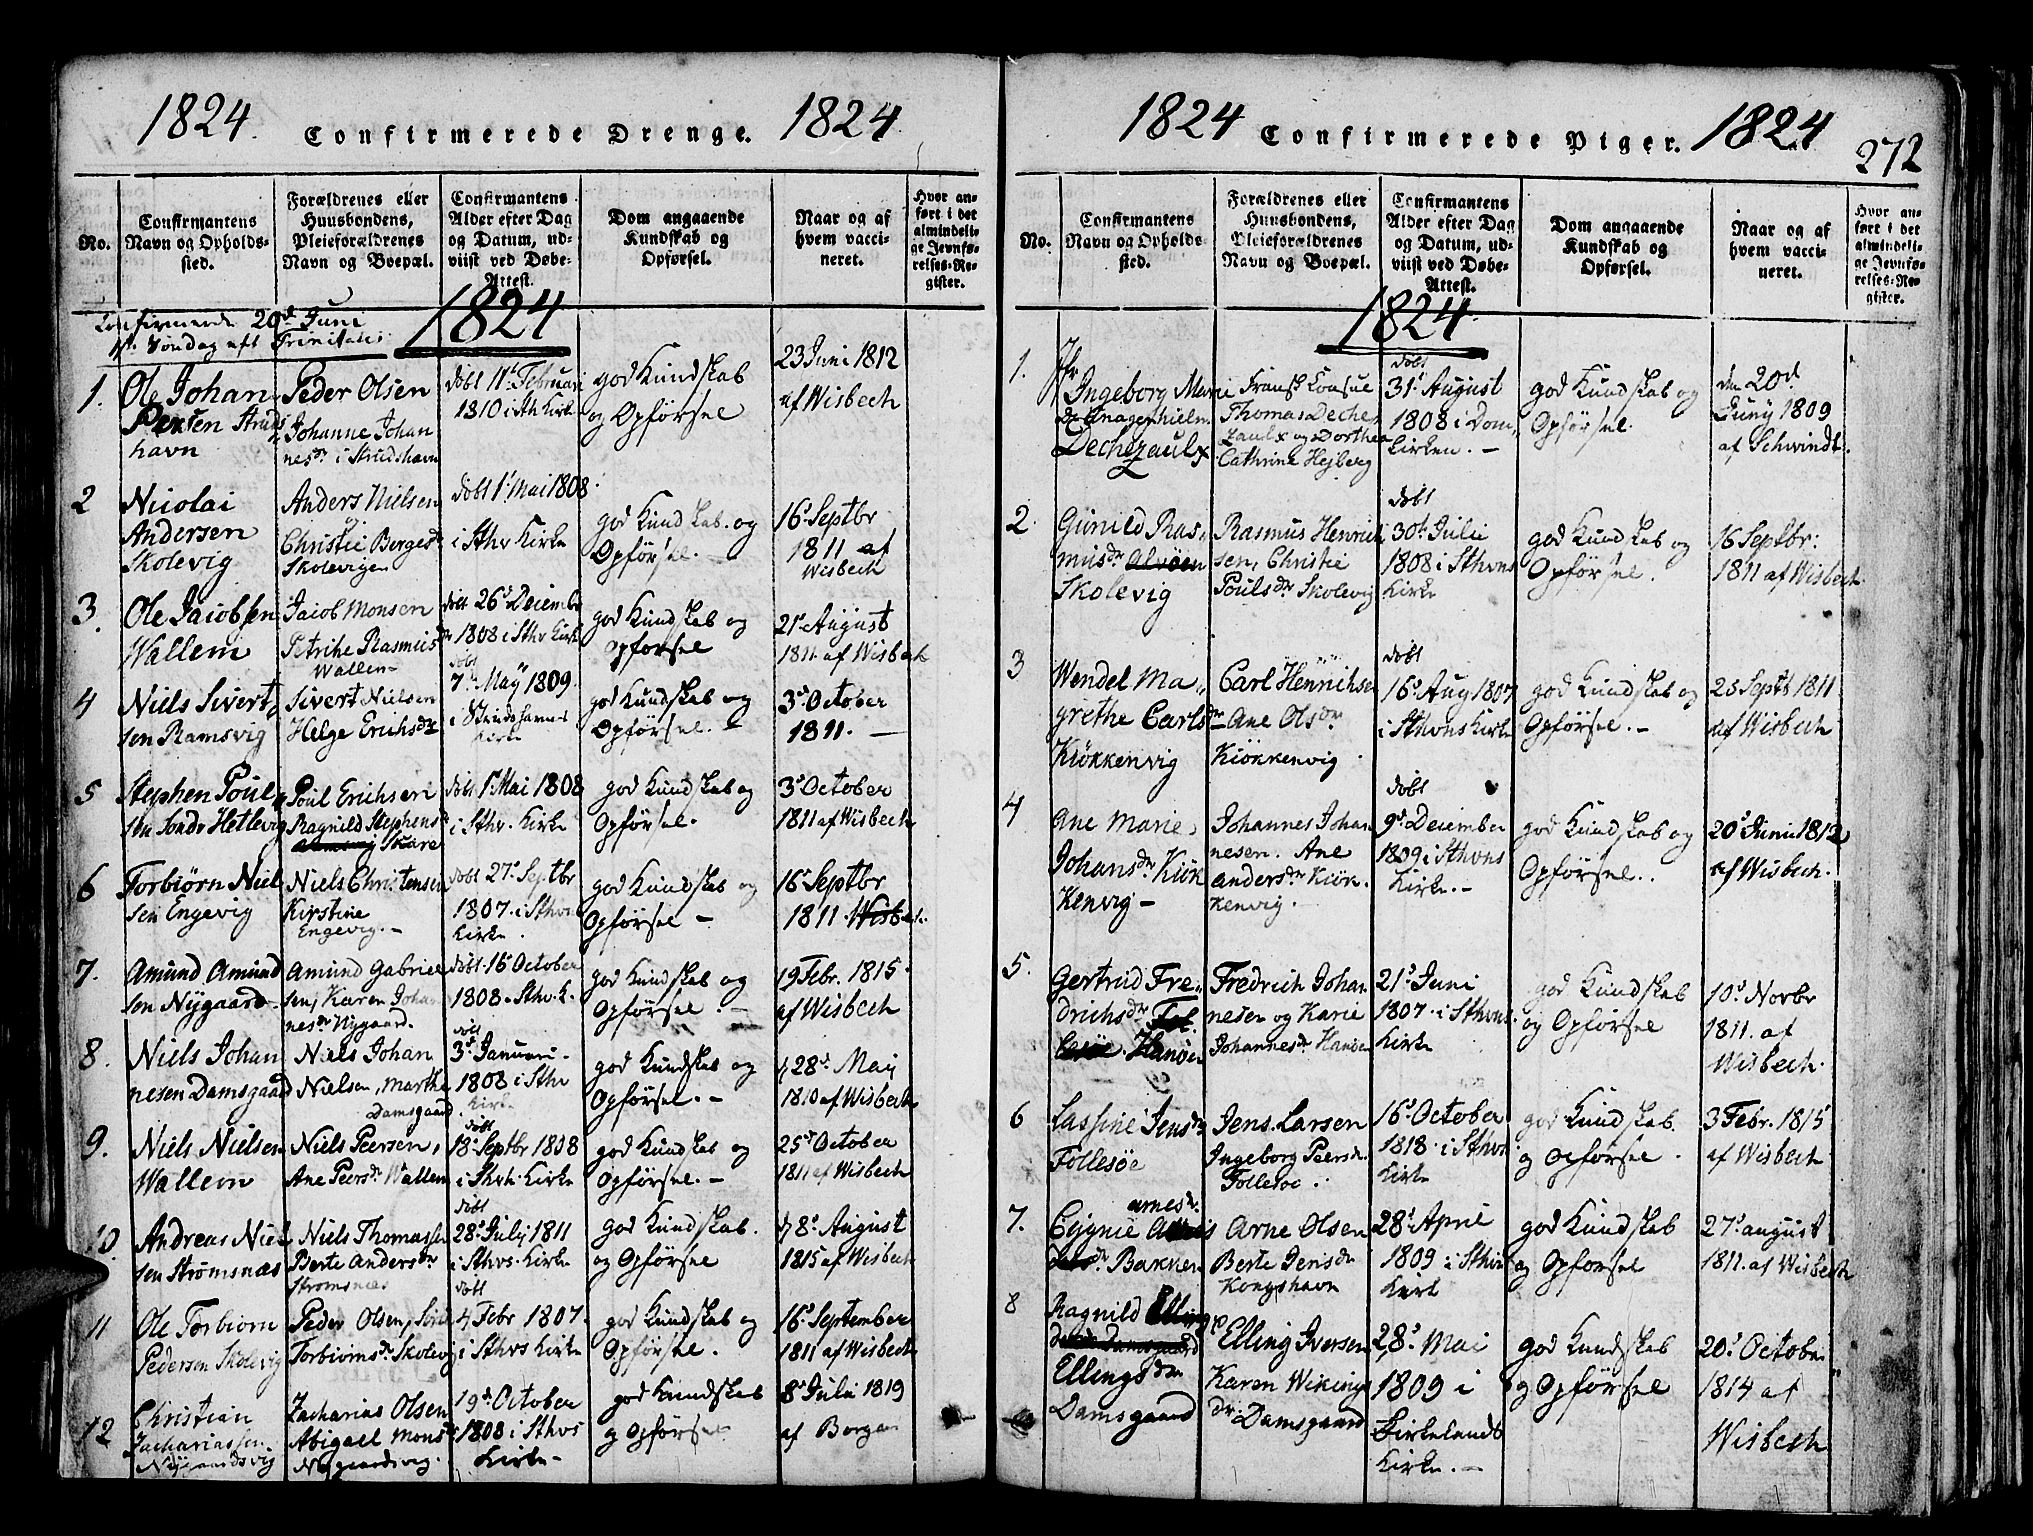 1824. Confirmerede Drenge. 1824.
No.
Confirmantens
Navn og Opholds-
sted.
Forældrenes eller
Huusbondens,
Pleieforældrenes
Navn og Boepæl.
Confirmantens
Alder efter Dag
og Datum, ud-
viist ved Døbe-
Attest.
Dom angaaende
Kundskab og
Opførsel.
Naar og af
hvem vacci-
neret.
Hvor an-
ført i det
almindeli-
ge Jevnfø-
relses-Re-
gister.
Confirmerede 20d Juni
1st Søndag eft Trinitatis
1824
1. Ole Johan
Persen Struds
havn
Peder Olsen
Johanne Johan
nesdr i Strudshavn
døbt 11t Februari
1810 i Sth Kirke
god Kundskab
og Opförsel
23 Juni 1812
af Wisbech
2 Nicolai
Andersen
Skolevig
Anders Nielsen
og
Christie Bergesdr
Skolevigen
døbt 1t Mai 1808
i Sthv Kirke
god Kundskab og
Opförsel.
16d Septbr
1811 af
Wisbech
3. Ole Jacobsen
Wallem
Jacob Monsen
Petrike Rasmusdr
Wallem
døbt 26d Decembr
1808 i Sthv Kirke
god Kundskab og
Opförsel
21d August
1811 af Wisbech
4 Niels Sivert
sen Ramsvig
Sivert Nielsen
Helge Erichsdr
døbt
7d May 1809.
i Strudshavns
Kirke
god Kundskab og
Opförsel.
3d October
1811.
5 Stephen Poul
sen Søndr Hetlevig
Poul Erichsen
Ragnild Stephensd
Skare
døbt 1t Mai 1808
i Sthv. Kirke
god Kundskab og
Opförsel.
3d October
1811 af Wisbech
6 Torbiørn Niel
sen Engevig
Niels Christensen
Kirstine
Engevig.
døbt 27d Septbr
1807. i Sthvns
Kirke.
god Kundskab og
Opförsel
16d Septbr
1811. Wisbech.
7. Amund Amund
sen Nygaard
Amund Gabriel
sen, Karen Johan
nesdr Nygaard.
døbt 16 October
1808. Sthv. K.
god Kundskab og
Opförsel.
19 Febr. 1815.
af Wisbech
8. Niels Johan
nesen Damsgaard
Niels Johan
Nielsen, Marthe
Damsgaard.
døbt
3d Januari
1808 i Sthv
Kirke
god Kundskab og
Opförsel.
28d May
1810 af Wisbech
9. Niels Nielsen
Wallem
Niels Peersen,
Ane Peersdr Wallem
døbt
18d Septbr 1808
i Sthv. Kirke
god Kundskab og
Opförsel.
25d October
1811 af Wisbech
10. Andreas Niel
sen Strømsnæs
Niels Thomassen
Berte Andersdr
Strømsnæs
døbt
28d July 1811
i Sthvs. Kirke
god Kundskab.
og Opförsel
8d August
1815 af Wisbech
11 Ole Torbiørn
Pedersen Skolevig
Peder Olsen, Siri
Torbiørnsdr Skolevig
døbt
4 Febr 1807.
i Sthvs Kirke
god Kundskab og
Opförsel.
16d September
1811 af Wisbech
12 Christian
Zachariassen
Nygaardsvig
Zacharias Olsen
Abigael Monsdr
Nygaardsvig.
19d October
1808 i Sthvs
Kirke
god Kundskab
og Opförsel
8d Julii 1819
af Borgen
1824 Confirmerede Piger. 1824
272
No.
Confirmantens
Navn og Opholds-
sted.
Forældrenes eller
Huusbondens,
Pleieforældrenes
Navn og Boepæl.
Confirmantens
Alder efter Dag
og Datum, ud-
viist ved Døbe-
Attest.
Dom angaaende
Kundskab og
Opførsel.
Naar og af
hvem vacci-
neret.
Hvor an-
ført i det
almindeli-
ge Jevnfø-
relses-Re-
gister.
1824.
1. Jfr
Ingeborg Marie
de Knagenhielm
Dechezaulx
Fransk Consul
Thomas Deche
zaulx og Dorthea
Cathrine Hejberg
døbt
31d August
1808 i Dom
Kirken.
god Kundskab og
Opförsel.
den 20d
Juny 1809
af Schwindt.
2 Gunild Ras
musdr Alvøen
Skolevig
Rasmus Henrich
sen, Christie
Poulsdr Skolevig
døbt
30d Julii
1808 i Sthvns
Kirke
god Kundskab og
Opförsel.
16 Septbr:
1811 af Wisbech.
3 Wendel Ma
grethe Carlsdr
Kiøkkenvig
Carl Hennichsen
Ane Olsdr
Kiøkkenvig
døbt
16d Aug 1807
i Sthvns Kirke
god Kundskab og
Opförsel.
25 Septb 1811
af Wisbech
4 Ane Marie
Johansdr Kiøk
Kenvig
Johannes Johan
nesen. Ane
Andersdr Kiøk
kenvig.
døbt
9d December
1809 i Sthvns
Kirke.
god Kundskab og
Opförsel.
20d Juni 1812
af Wisbech.
5. Gertrud Fre
drichsdr
Hanøen
Fredrich Johan
nesen og Karie
Johannesdr Hanøen
21d Juni
1807. i Sthvns
Kirke
god Kundskab
og Opförsel
10d Novbr
1811. af
Wisbech.
6 Lassine Jensdr
Follesøe
Jens Larsen
Ingeborg Peersdr
Follesøe.
16d October
1818. i Sthvn
Kirke
god Kundskab.
og Opförsel.
3 Febr. 1815
af Wisbech
7. Arnesdr
Bakken
Arne Olsen
Berte Jensdr
Kongshavn
28d April
1809 i Sthv
Kirk
god Kundskab
og Opförsel
27d August
1811. af Wisbech
8 Ragnild
Damsgaard
Ellingsdr
Damsgaard
Elling Iversen
Karen Wikings
dr. Damsgaard
28d Mai
1809 i
Birkelands
Kirke.
god Kundskab
og Opförsel
20d October
1814 af
Wisbech